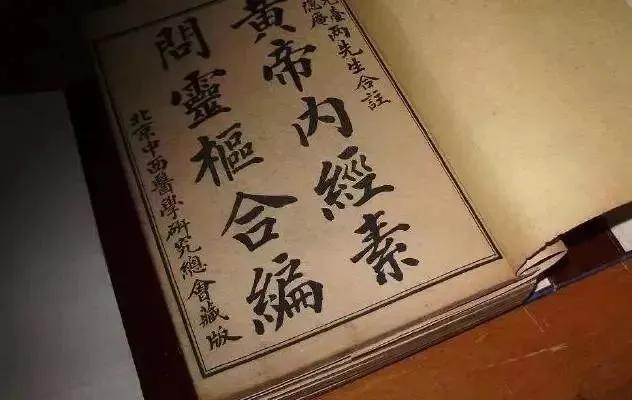 兩先生合註
黃帝內經素
問靈樞合編
北京中西醫學硏究總會藏版